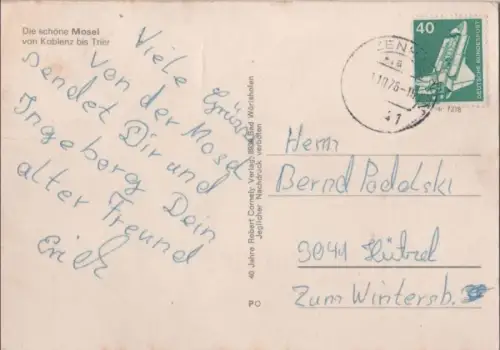 Die schöne Mosel
von Koblenz bis Trier
Viele Grüße
von der Mosel
sendet Dir und
Ingeborg Dein
alter Freund
Erich
40 Jahre Robert Cornely Verlag, Bad Wörishofen
Jeglicher Nachdruck verboten
PO
40
DEUTSCHE BUNDESPOST
41
Herrn
Bernd Padolski
3041 Hützel
Zum Wintersb.